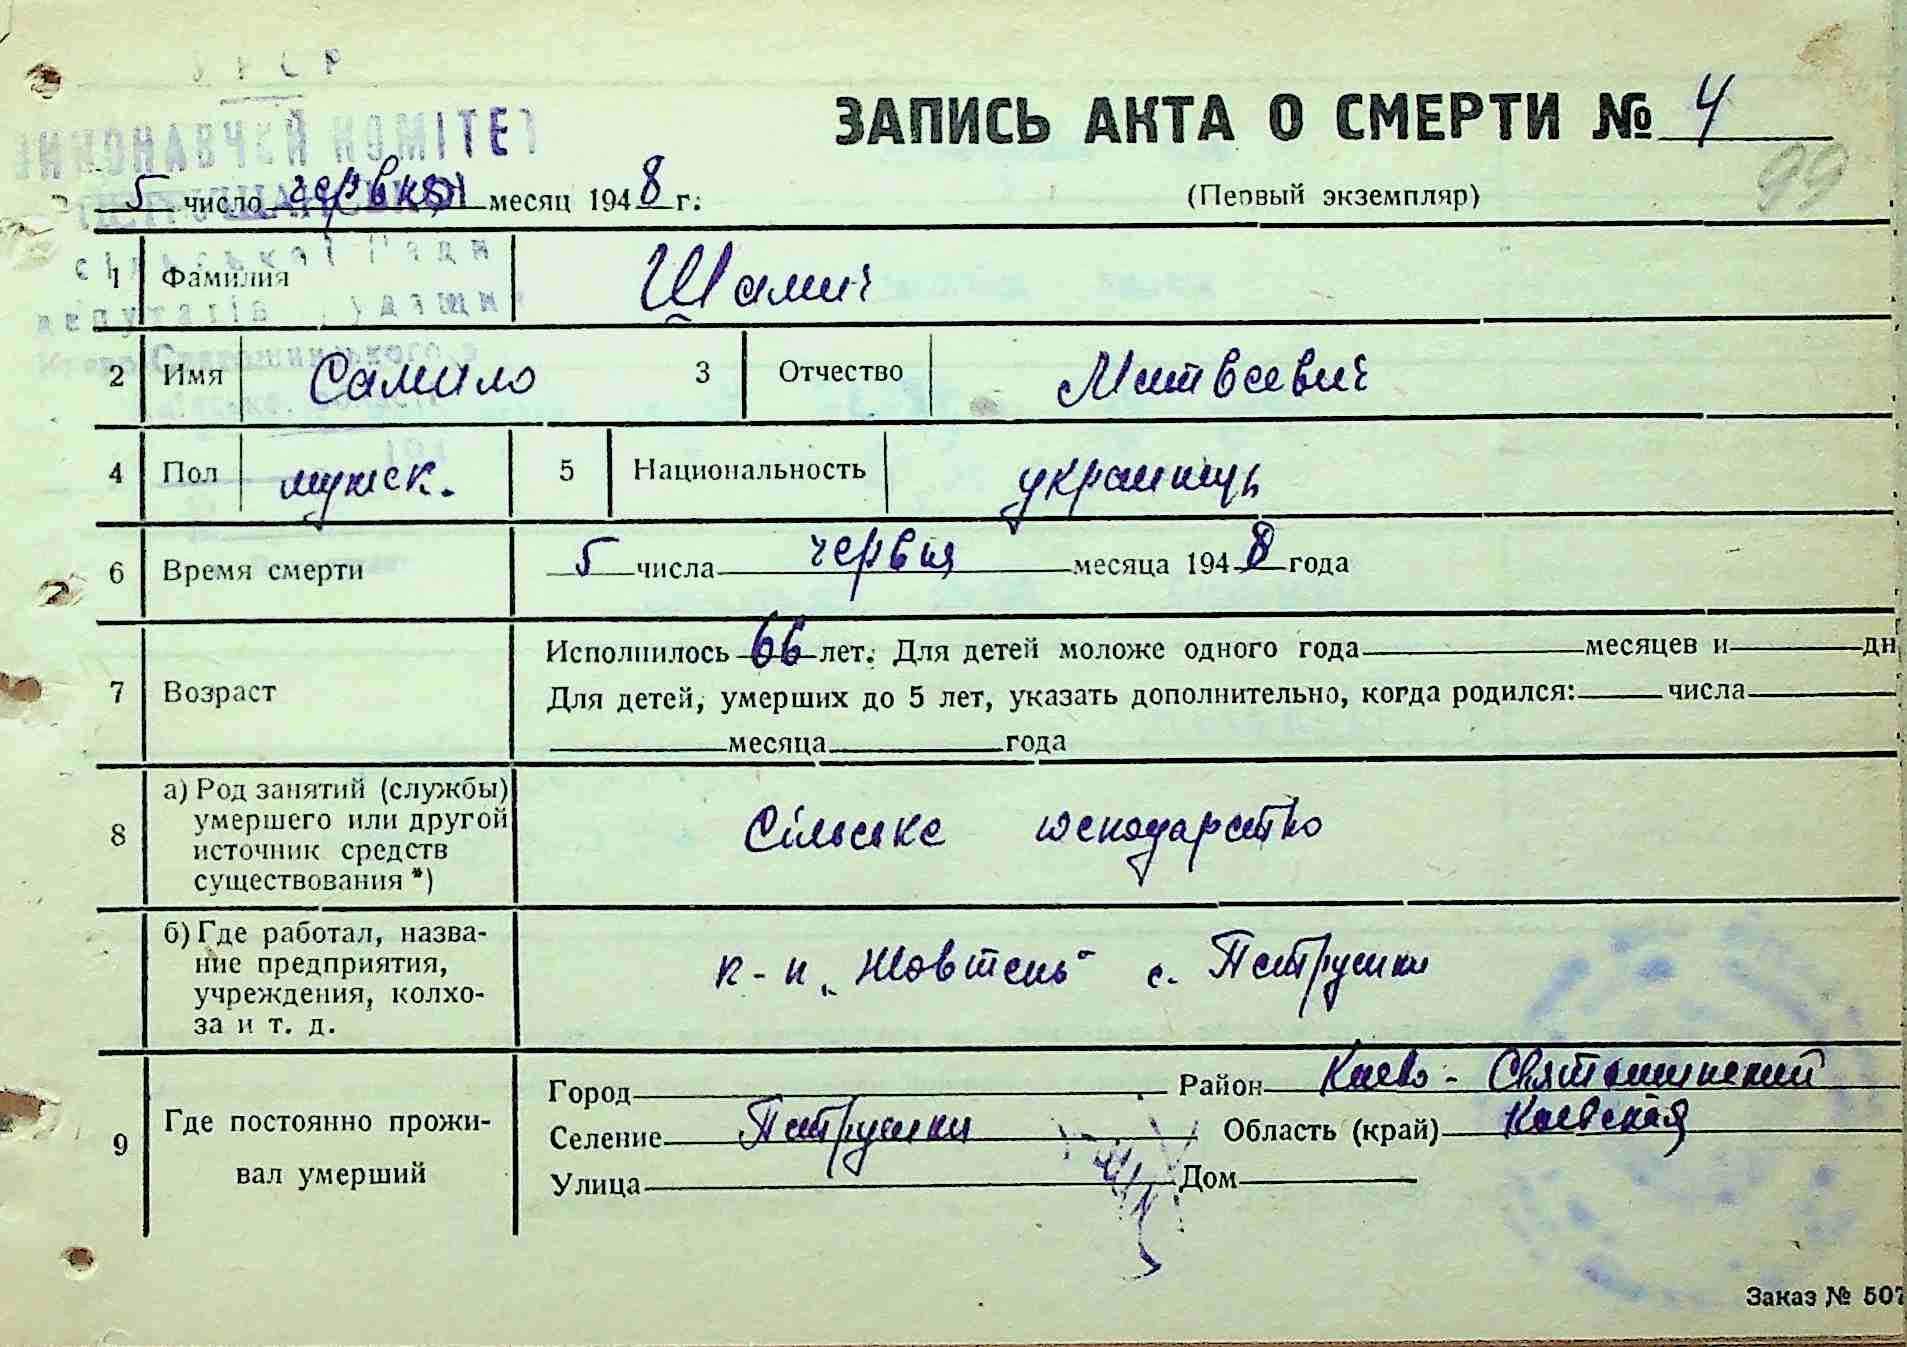 УРСР
ВИКОНАВЧИЙ КОМІТЕТ
сільської Ради
депутатів трудящих
Києво-Святошинського
ЗАПИСЬ АКТА О СМЕРТИ № 4
99
5 число червня месяц 1948 г.
(Первый экземпляр)
1 Фамилия Шамич
2 Имя Самило 3 Отчество Матвеевич
4 Пол мужск. 5 Национальность украинць
6 Время смерти 5 числа червня месяца 1948 года
7 Возраст
Исполнилось 66 лет. Для детей моложе одного года месяцев и дн
Для детей, умерших до 5 лет, указать дополнительно, когда родился: числа
месяца года
8 а) Род занятий (службы)
умершего или другой
источник средств
существования *)
Сільське господарство
б) Где работал, назва-
ние предприятия,
учреждения, колхо-
за и т. д.
к-п „Жовтень" с. Петрушки
9 Где постоянно прожи-
вал умерший
Город Район Киево-Святошинский
Селение Петрушки Область (край) Киевская
Улица Дом
Заказ № 507